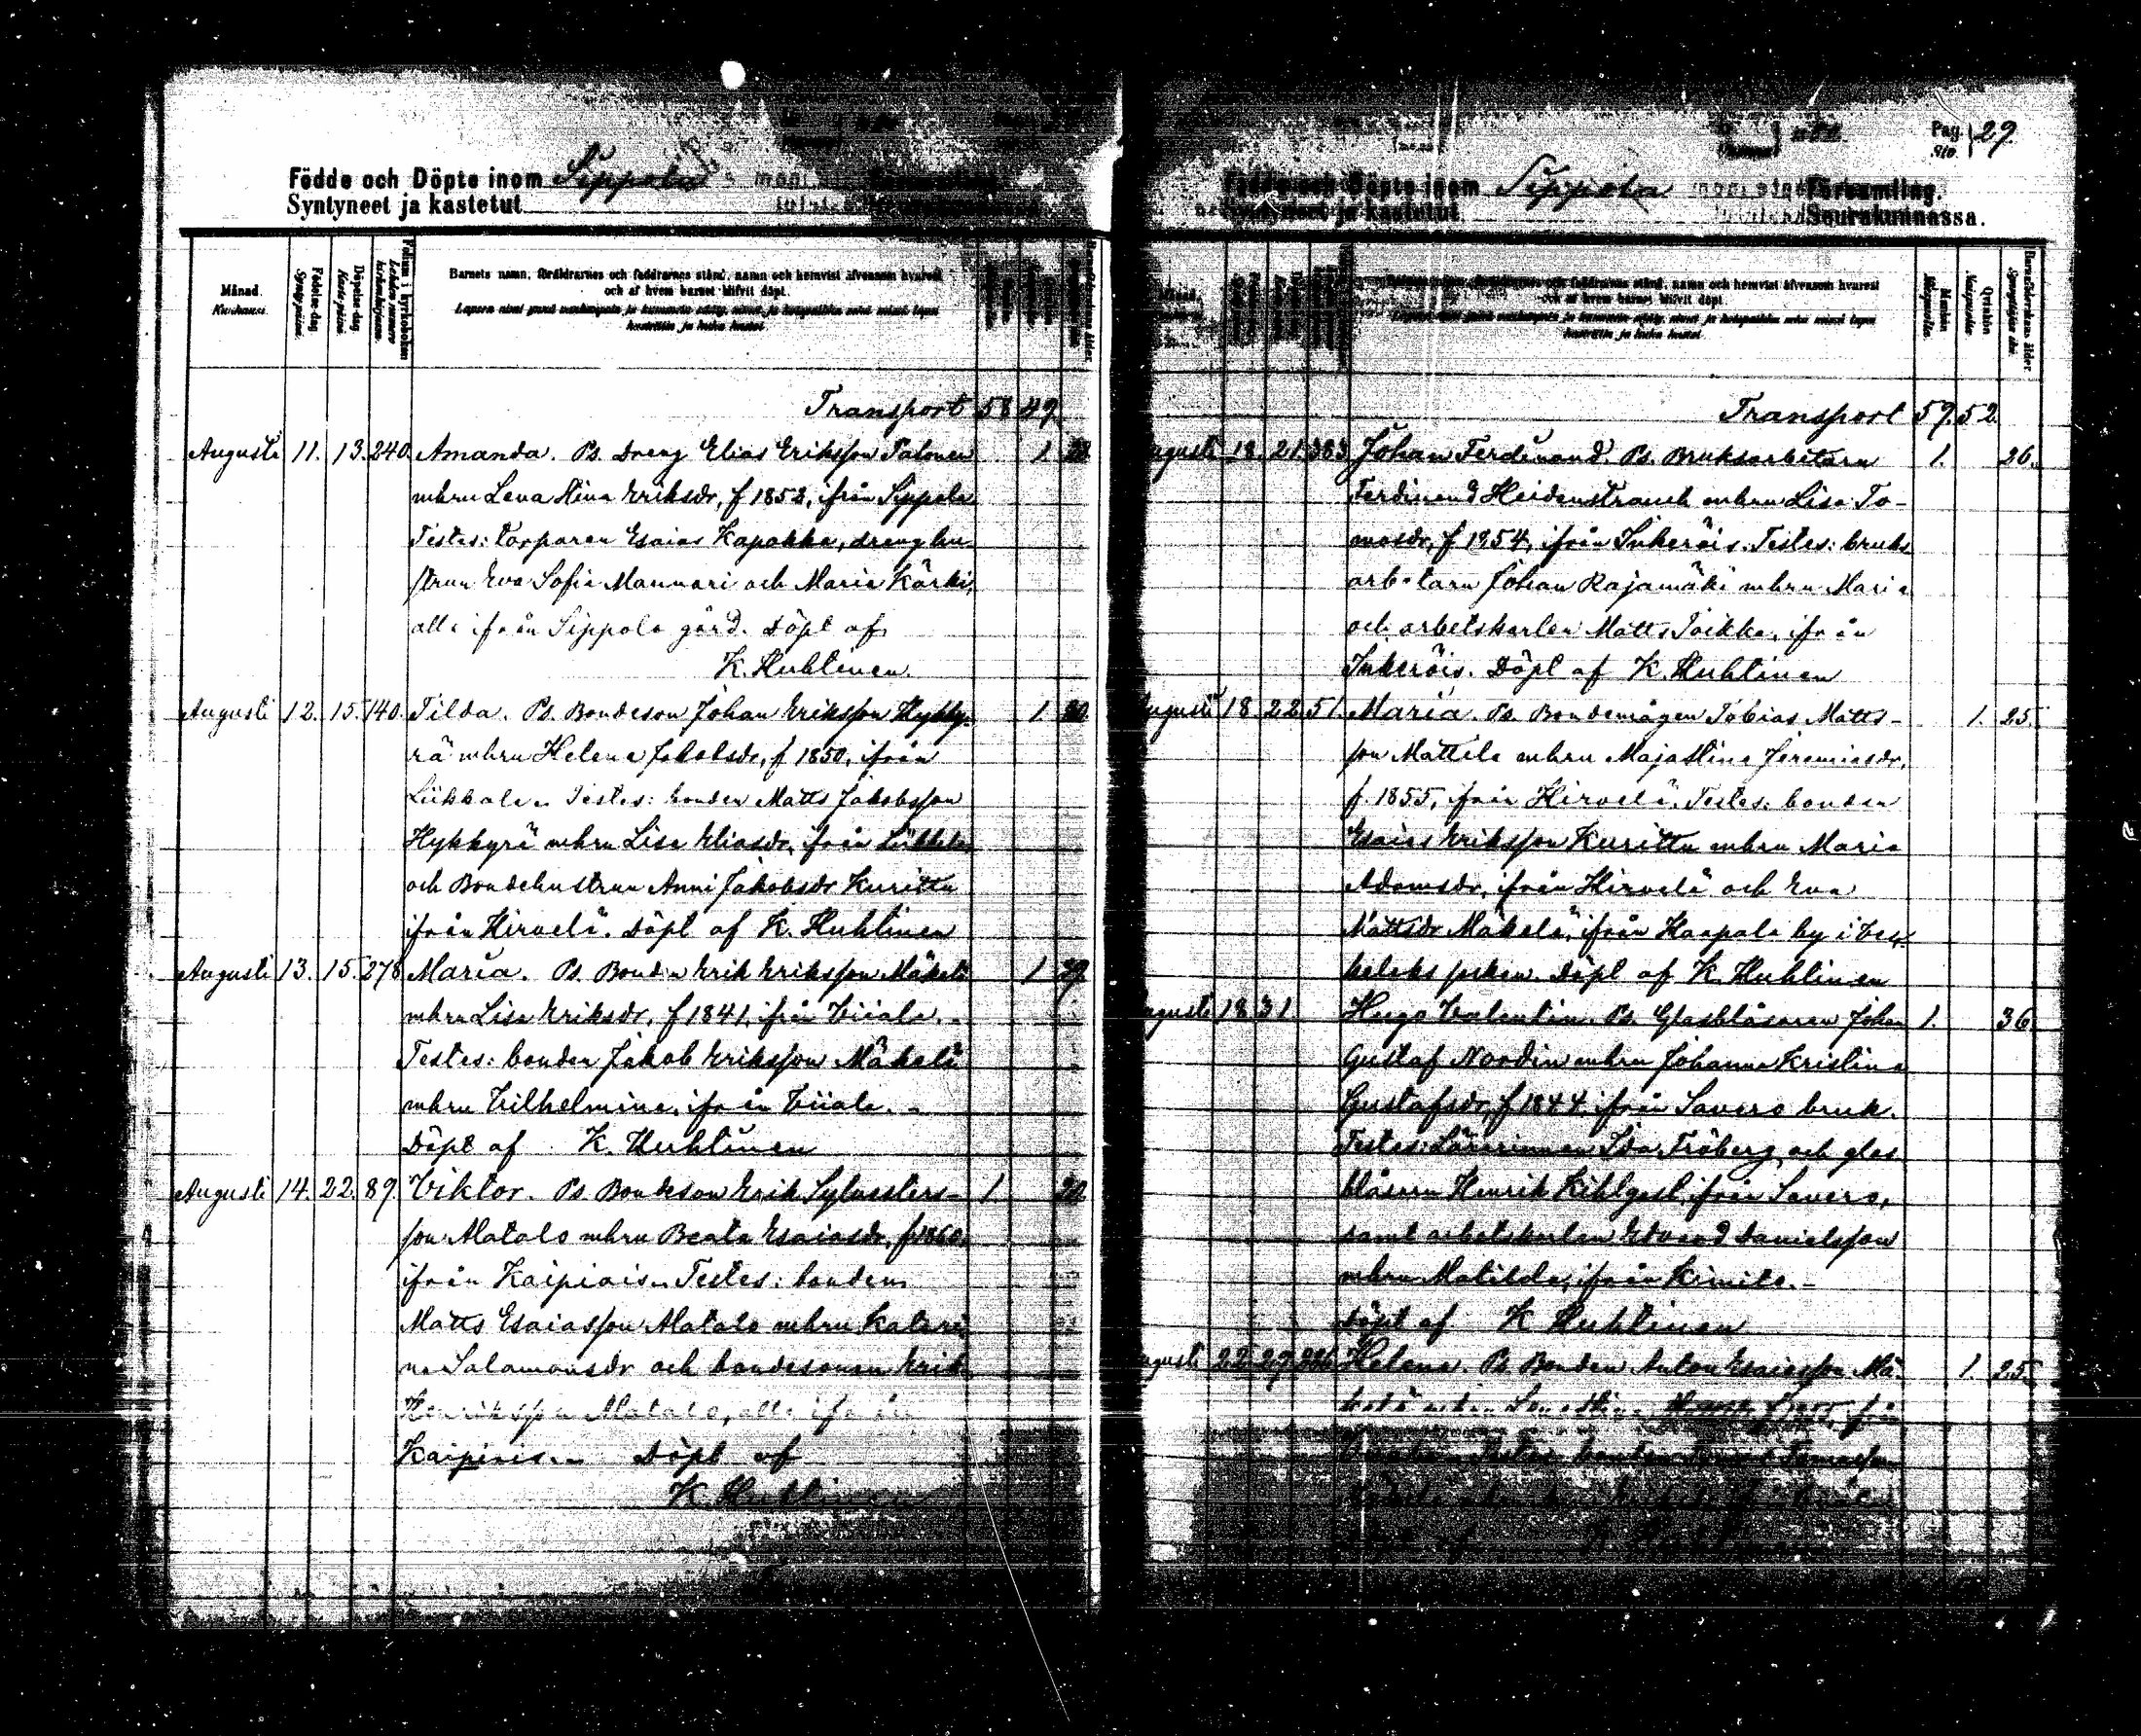 Födde och Döpte inom Sippola
Syntyneet ja kastetut
Månad. Kuukausi.
Födelse-dag. Syntympäivä.
Döpelse-dag. Kastepäivä.
Barnets namn, föräldrarnes och faddrarnes stånd, namn och hemvist äfvensom hvarest
och af hvem barnet blifvit döpt.
Transport 58 49
Augusti 11. 13. 240. Amanda. Ps. Dreng Elias Eriksson Talonen 1. 28
mhru Lena Stina Eriksdr, f 1853, ifrån Sippola
Testes: torparen Esaias Kapakka, drenghu-
strun Eva Sofia Mannari och Maria Kärki,
alla ifrån Sippola gård. Döpt af
K. Huhtinen.
Augusti 12. 15. 140. Tilda. Ps. Bondeson Johan Eriksson Hykky- 1. 30
rä mhru Helena Jakobsdr, f 1850, ifrån
Liikkala. Testes: bonden Matts Jakobsson
Hykkyrä mhru Lisa Eliasdr, ifrån Liikkala,
och Bondehustrun Anni Jakobsdr Kurittu
ifrån Hirvelä. Döpt af K. Huhtinen
Augusti 13. 15. 278 Maria. Ps. Bonden Erik Eriksson Mäkelä 1. 39.
mhru Lisa Eriksdr, f 1841, ifrån Viiala.
Testes: bonden Jakob Eriksson Mäkelä
mhru Vilhelmina, ifrån Viiala.
Döpt af K. Huhtinen
Augusti 14. 22. 89. Viktor. Ps. Bondeson Erik Sylvesters- 1. 20
son Alatalo mhru Beata Esaiasdr, f 1860,
ifrån Kaipiais. Testes: bonden
Matts Esaiasson Alatalo mhru Katari
na Salamonsdr och bondesonen Erik
Henriksson Alatalo, alla ifrån
Kaipiais. Döpt af
K. Huhtinen
Pag. Sio. 29.
Födde och Döpte inom Sippola Församling.
Syntyneet ja kastetut Seurakunnassa.
Mankön Miespuolia.
Qvinkön Vaimopuolia.
Transport 59. 52.
Augusti 18. 21. 383 Johan Ferdinand. Ps. Bruksarbetaren 1. 26.
Ferdinand Heidenstrauch mhru Lisa To-
masdr, f 1854, ifrån Inkeröis. Testes: bruks
arbetarn Johan Rajamäki mhru Maria
och arbetskarlen Matts Toikka, ifrån
Inkeröis. Döpt af K. Huhtinen
Augusti 18 22 51. Maria. Ps. Bondemågen Tobias Matts- 1. 25.
son Mattila mhru Maja Stina Jeremiasdr,
f. 1855, ifrån Hirvelä. Testes: bonden
Esaias Eriksson Kurittu mhru Maria
Adamsdr, ifrån Hirvelä och Eva
Mattsdr Mäkelä, ifrån Haapala by i Vec-
kelaks socken. Döpt af K. Huhtinen
Augusti 18 31. Hugo Valentin. Ps. Glasblåsaren Johan 1. 36.
Gustaf Nordin mhru Johanna Kristina
Gustafsdr, f 1844, ifrån Savero bruk.
Testes: Lärarinnan Ida Fröberg och glas
blåsarn Henrik Kihlgast, ifrån Savero,
samt arbetskarlen Edvard Danielsson
mhru Matilda, ifrån Kimito.
Döpt af K. Huhtinen
Augusti 22. 29. 286. Helena. Ps. Bonden Anton Esaiasson Mä- 1. 25.
f 1855, från
Testes: bonden Tomasson
Döpt af K. Huhtinen